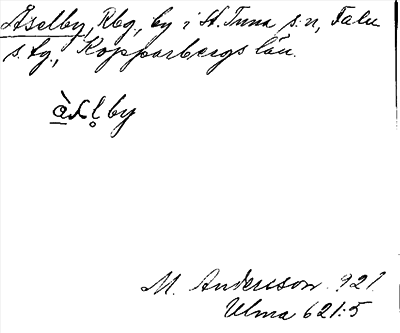 Åselby, Rbg, by i St. Tuna s:n, Falu
s. lg., Kopparbergs län.
by
M. Andersson 921.
Ulma 621:5